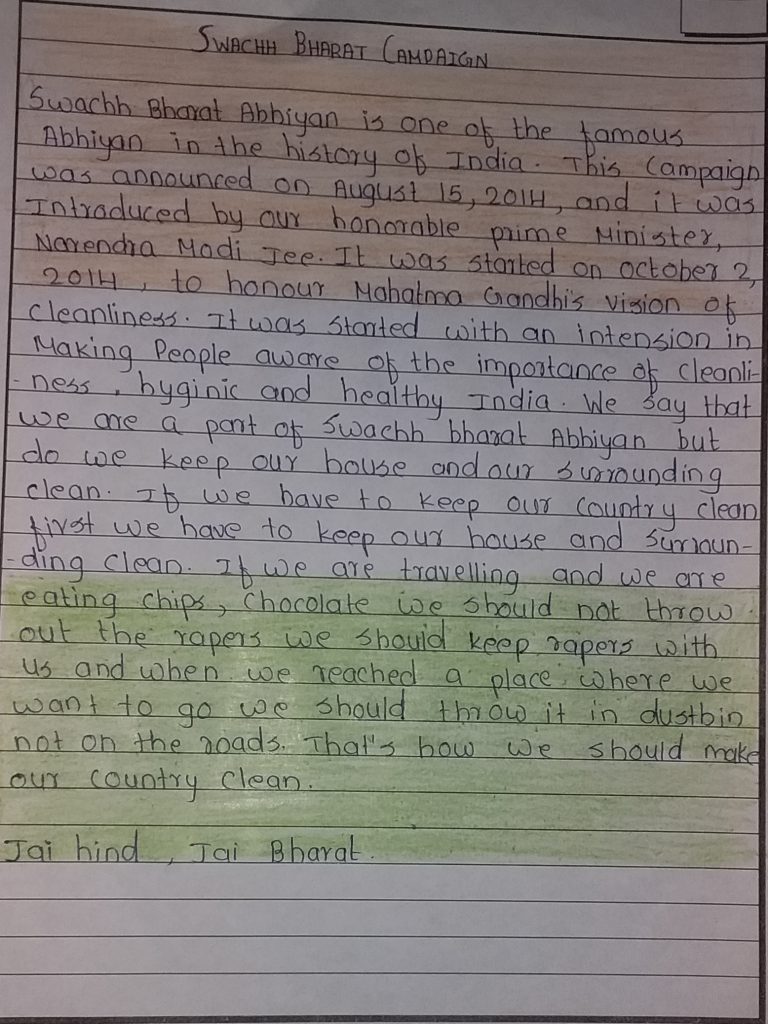 SWACHH BHARAT CAMPAIGN
Swachh Bharat Abhiyan is one of the famous
Abhiyan in the history of India. This Campaign
was announced on August 15, 2014, and it was
Introduced by our honorable prime Minister,
Narendra Modi Jee. It was started on october 2,
2014, to honour Mahatma Gandhi's vision of
cleanliness. It was started with an intension in
Making People aware of the importance of cleanli-
-ness, hyginic and healthy India. We say that
we are a part of Swachh bharat Abhiyan but
do we keep our house and our surrounding
clean. If we have to keep our country clean
first we have to keep our house and surroun-
-ding clean. If we are travelling and we are
eating chips, chocolate we should not throw
out the rapers we should keep rapers with
us and when we reached a place where we
want to go we should throw it in dustbin
not on the roads. That's how we should make
our country clean.
Jai hind, Jai Bharat.